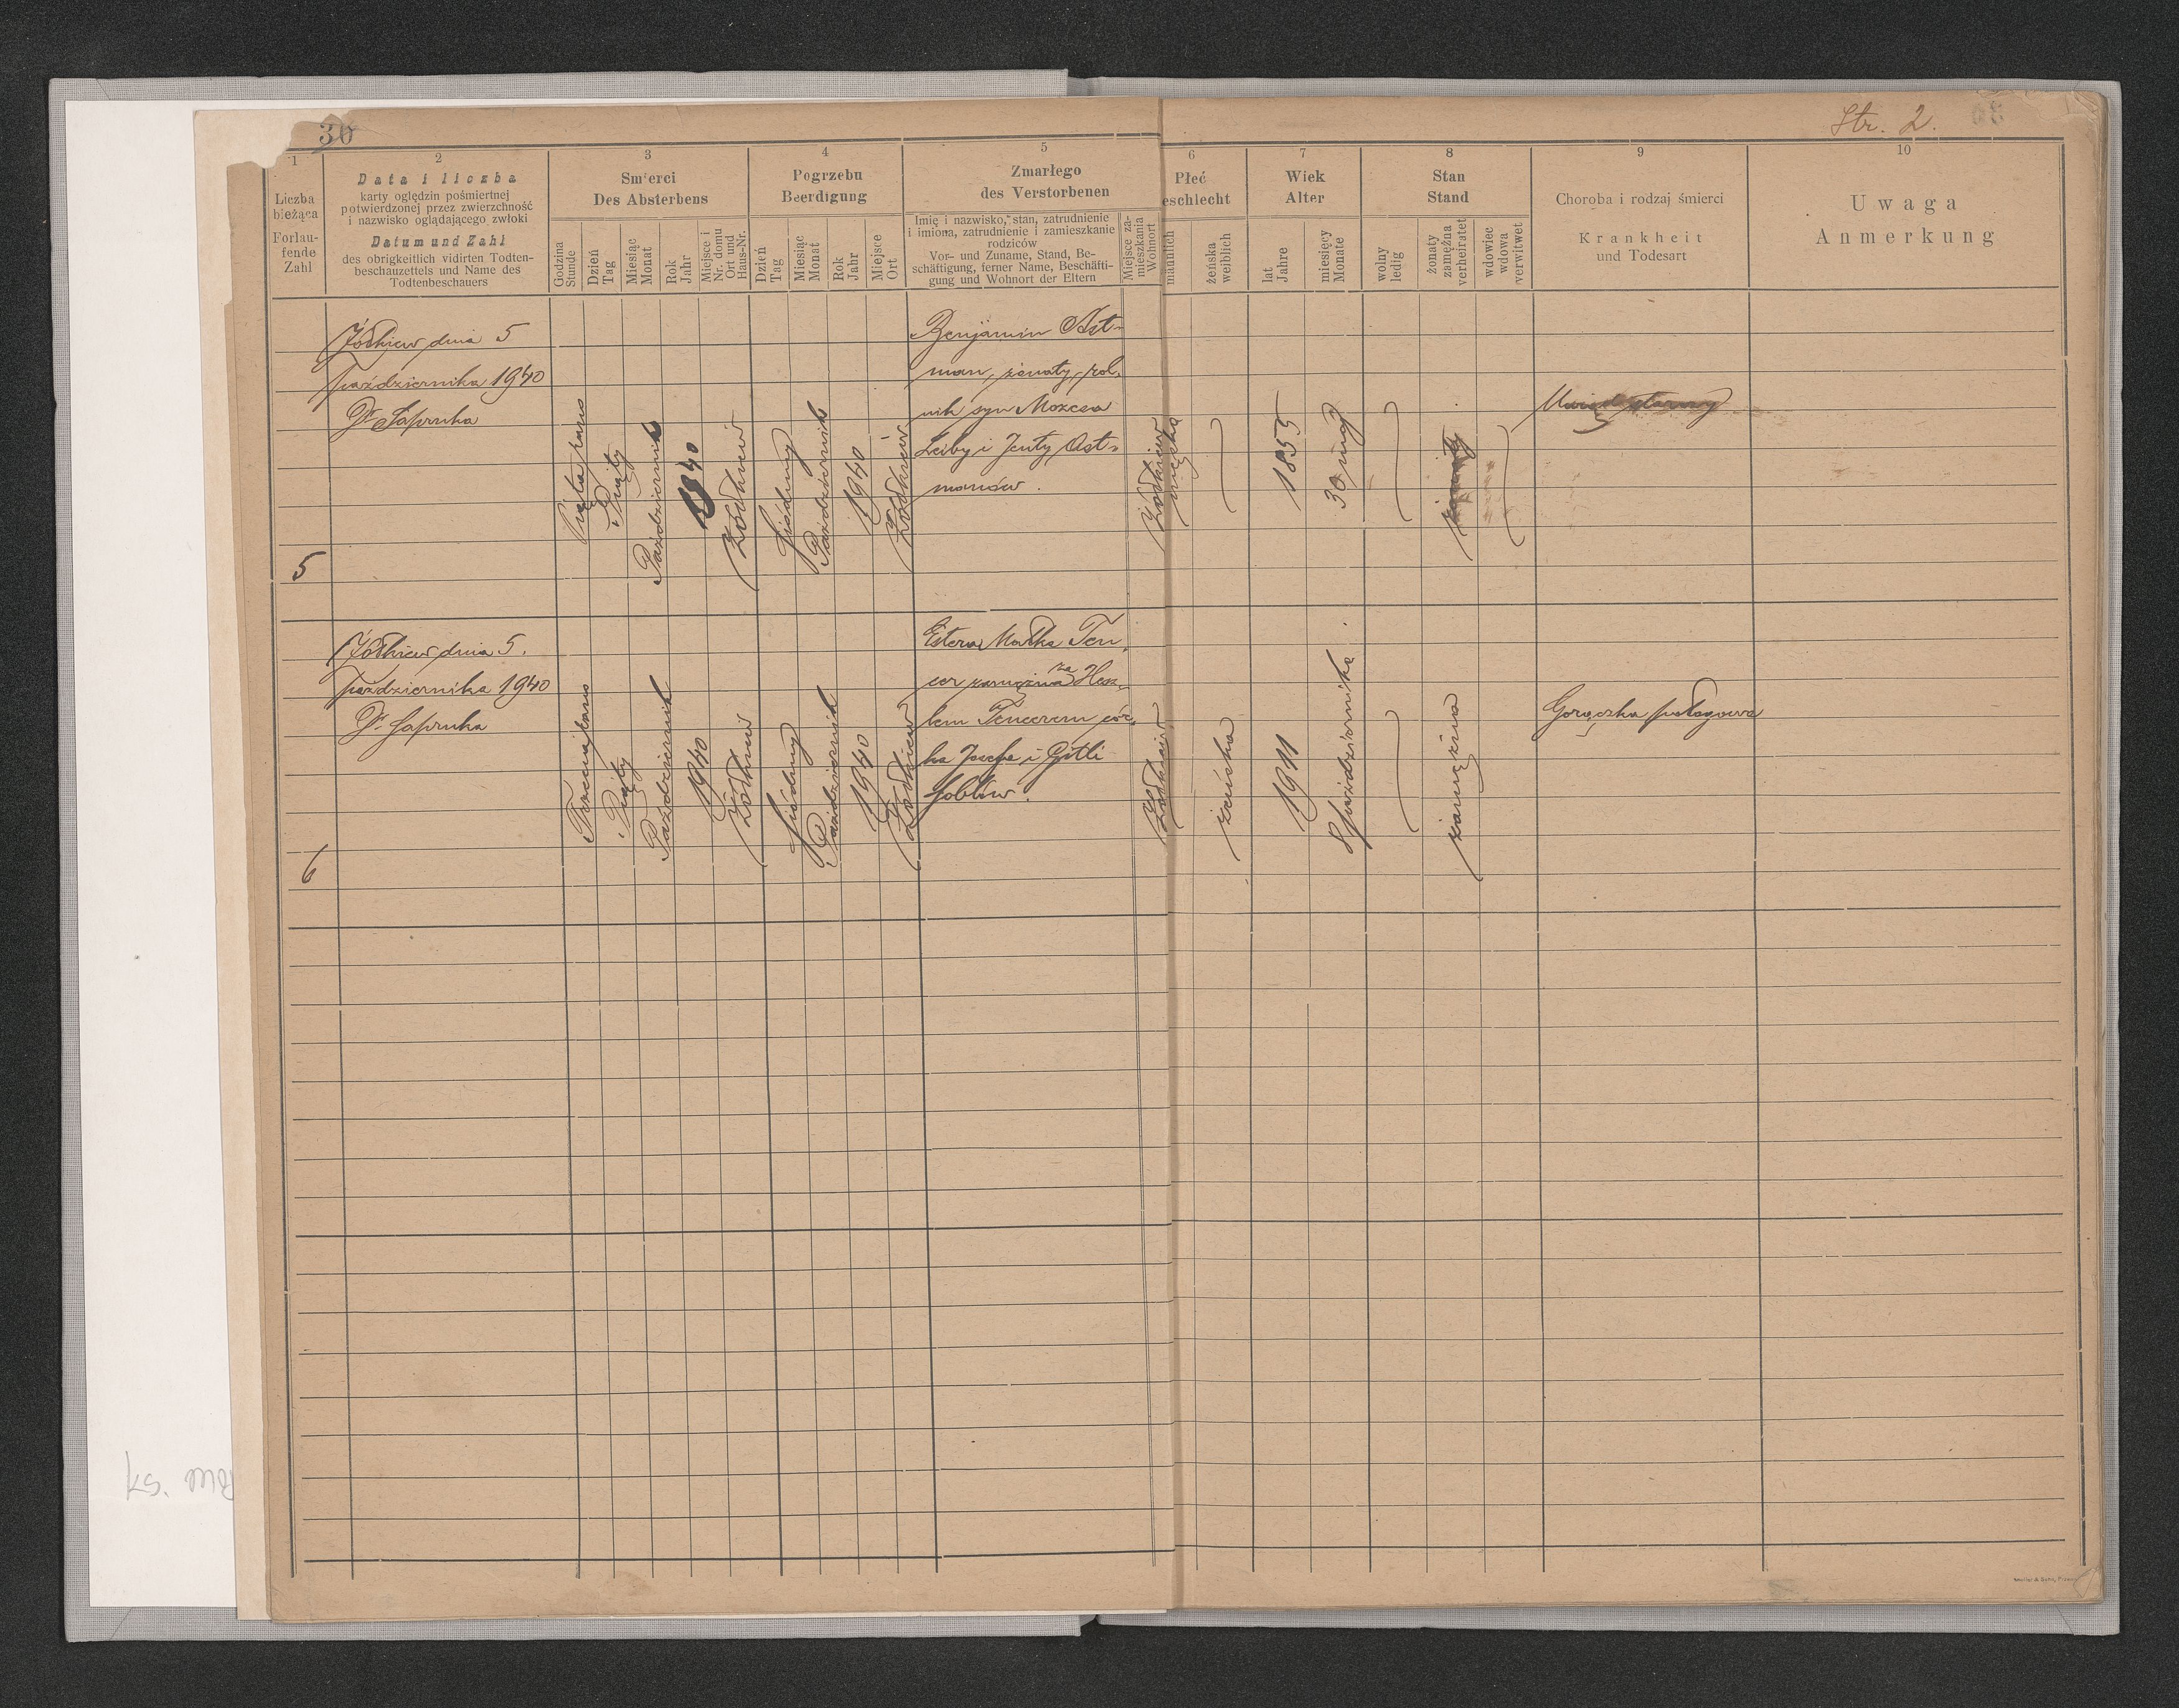 30
Str. 2.
1
Liczba
bieżąca
Forlau-
fende
Zahl
2
Data i liczba
karty oględzin pośmiertnej
potwierdzonej przez zwierzchność
i nazwisko oglądającego zwłoki
Datum und Zahl
des obrigkeitlich vidirten Todten-
beschauzettels und Name des
Todtenbeschauers
3
Śmierci
Des Absterbens
Godzina
Stunde
Dzień
Tag
Miesiąc
Monat
Rok
Jahr
Miejsce i
Nr. domu
Ort und
Haus-Nr.
4
Pogrzebu
Beerdigung
Dzień
Tag
Miesiąc
Monat
Rok
Jahr
Miejsce
Ort
5
Zmarłego
des Verstorbenen
Imię i nazwisko, stan, zatrudnienie
i imiona, zatrudnienie i zamieszkanie
rodziców
Vor- und Zuname, Stand, Be-
schäftigung, ferner Name, Beschäfti-
gung und Wohnort der Eltern
Miejsce za-
mieszkania
Wohnort
6
Płeć
eschlecht
männlich
żeńska
weiblich
7
Wiek
Alter
lat
Jahre
miesięcy
Monate
8
Stan
Stand
wolny
ledig
żonaty
zamężna
verheiratet
wdowiec
wdowa
verwitwet
9
Choroba i rodzaj śmierci
Krankheit
und Todesart
10
Uwaga
Anmerkung
5
Żółkiew dnia 5
października 1940
Dr Sapruka
Piąta rano
Piąty
Październik
1940
Żółkiew
Siódmy
Październik
1940
Żółkiew
Benjamin Ast-
man, żonaty, rol.
nik syn Mozesa
Leiby i Jenty Ast-
manów.
Żółkiew
męska
1855
30 maj
żonaty
Uwiąd starczy
6
Żółkiew dnia 5.
października 1940
Dr Sapruka
Trzecia rano
Piąty
Październik
1940
Żółkiew
Siódmy
Październik
1940
Żółkiew
Estera Małka Ten,
cer zamężna za Hesz-
lem Tencerem cór-
ka Josefa i Gitli
Soblów.
Żółkiew
żeńska
1911
8 października
zamężna
Gorączka połogowa